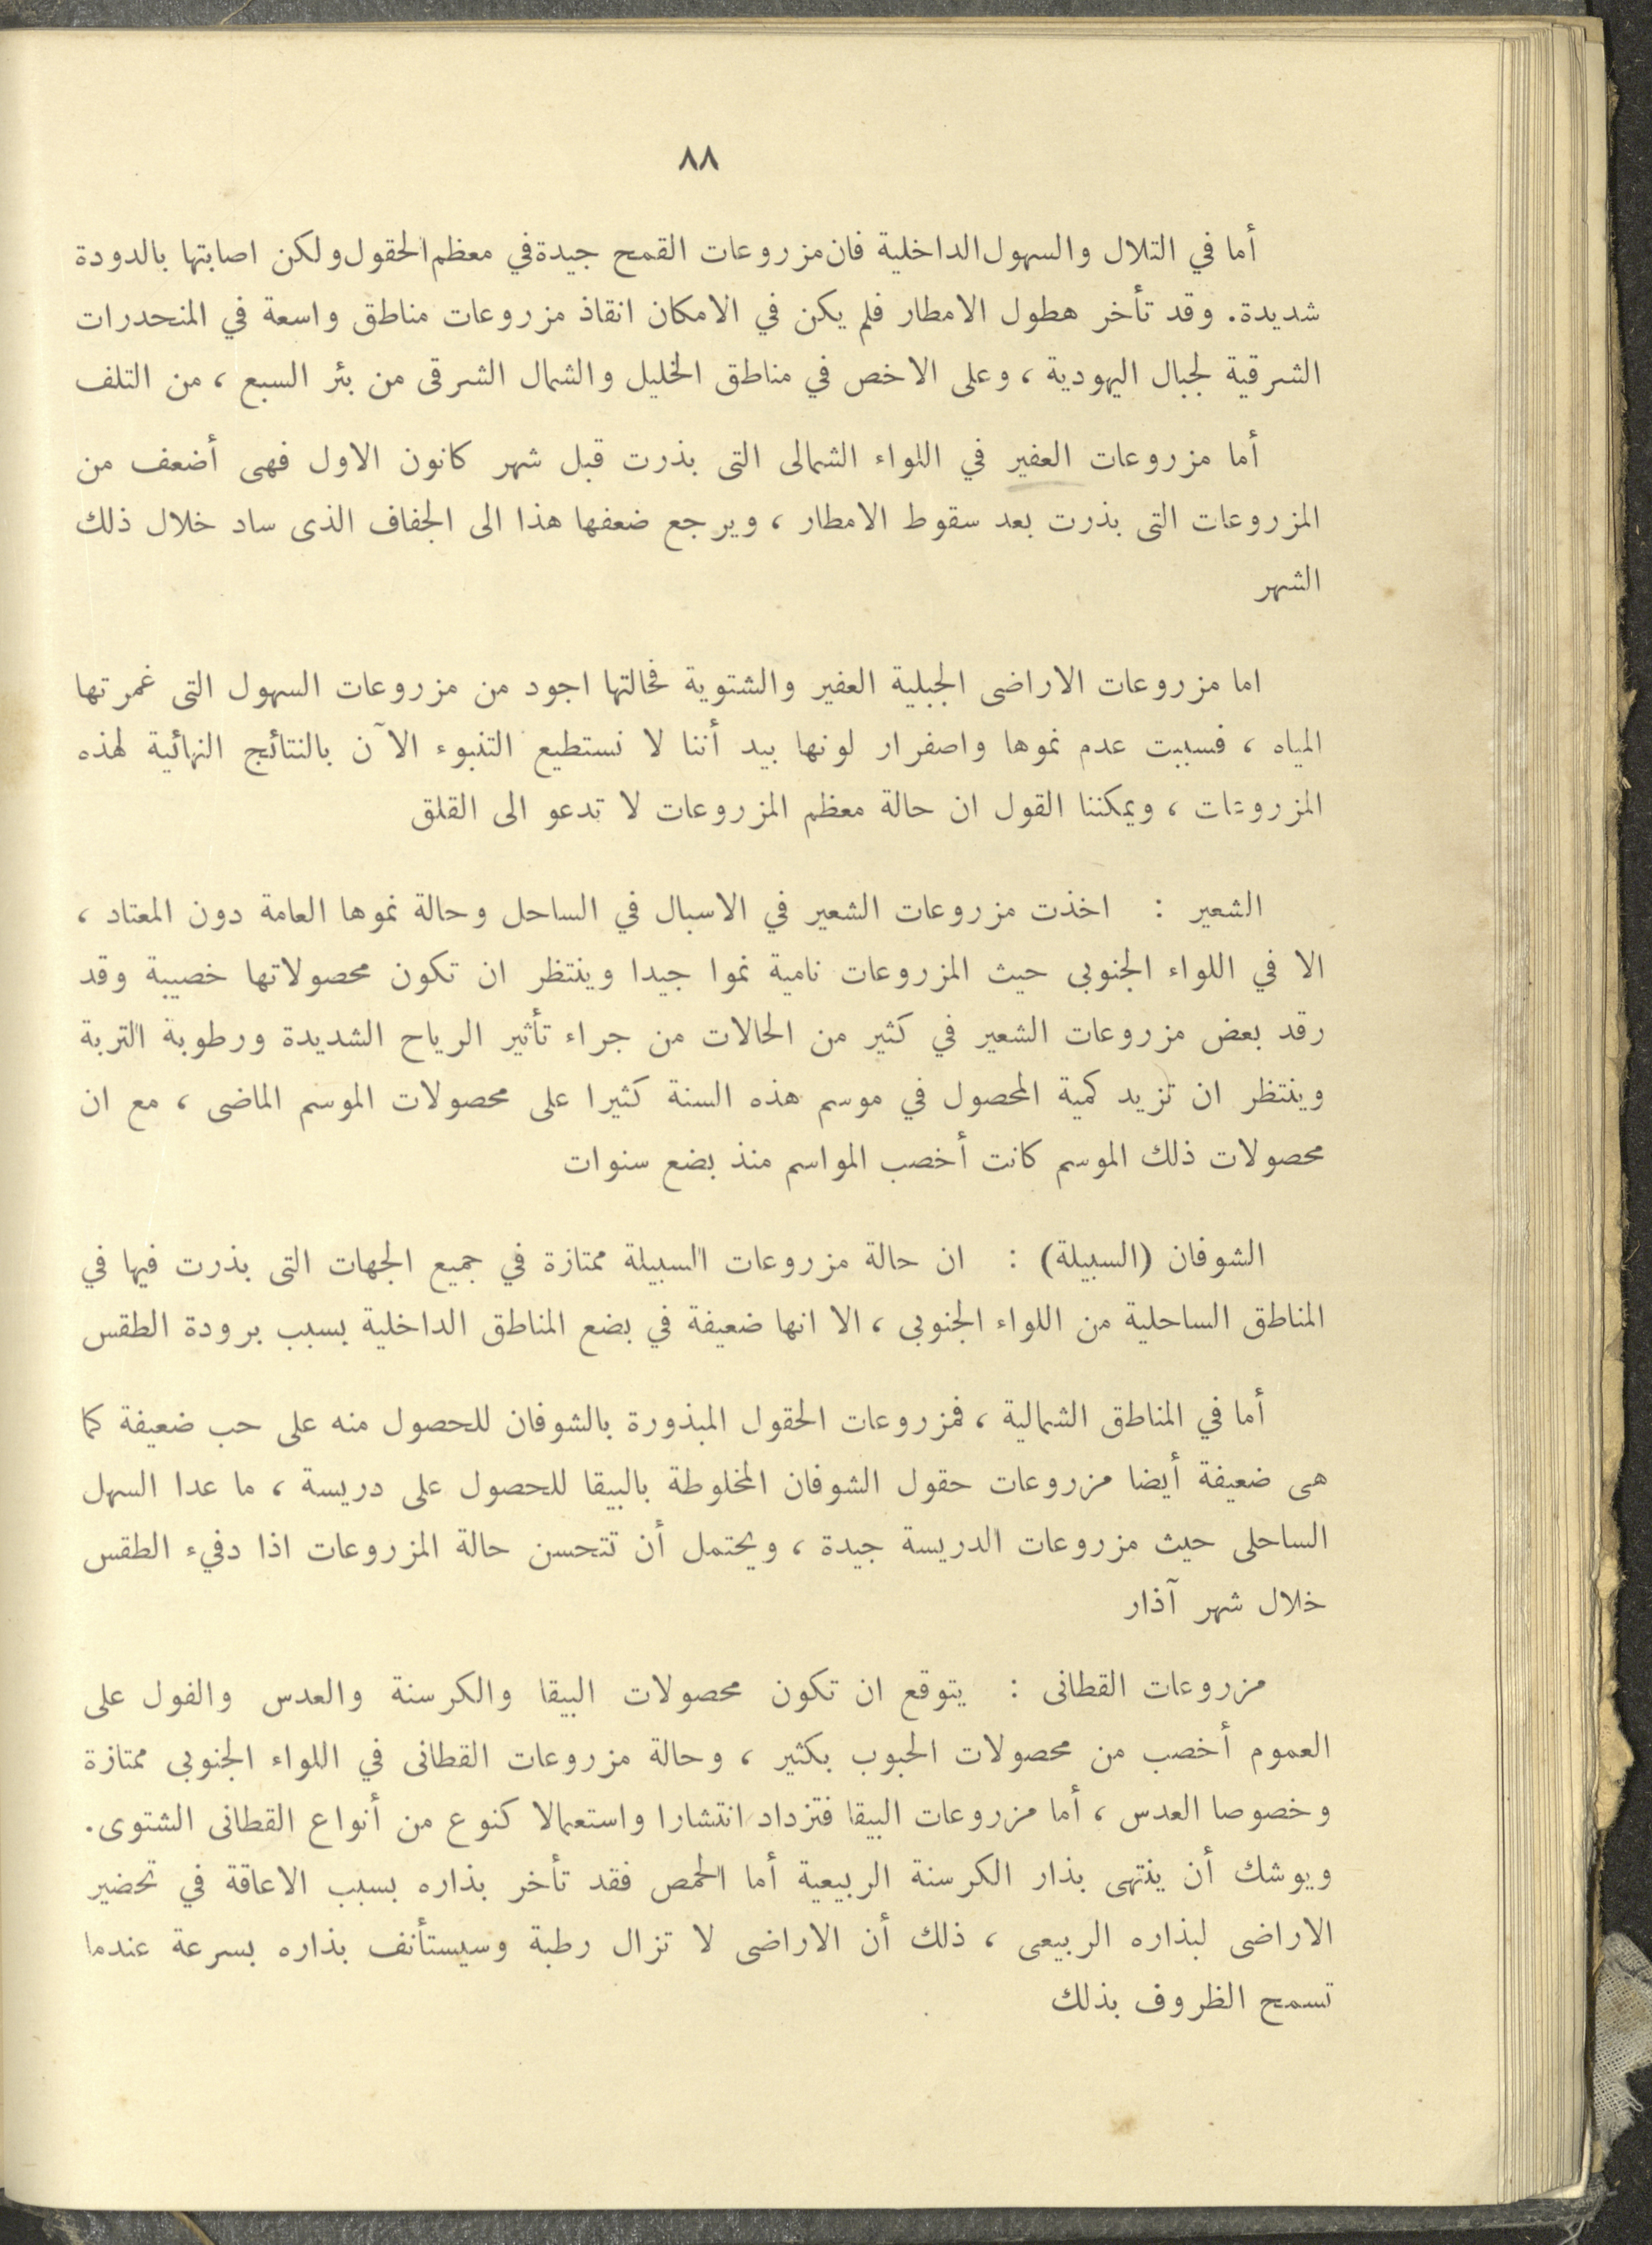 ٨٨
أما في التلال والسهول الداخلية فان مزروعات القمح جيدة في معظم الحقول ولكن اصابتها بالدودة
شديدة. وقد تأخر هطول الامطار فلم يكن في الامكان انقاذ مزروعات مناطق واسعة في المنحدرات
الشرقية لجبال اليهودية ، وعلى الاخص في مناطق الخليل والشمال الشرقى من بئر السبع ، من التلف
أما مزروعات العفير في اللواء الشمالى التى بذرت قبل شهر كانون الاول فهى أضعف من
المزروعات التى بذرت بعد سقوط الامطار ، ويرجع ضعفها هذا الى الجفاف الذى ساد خلال ذلك
الشهر
اما مزروعات الاراضى الجبلية العفير والشتوية فحالتها اجود من مزروعات السهول التى غمرتها
المياه ، فسببت عدم نموها واصفرار لونها بيد أننا لا نستطيع التنبوء الآن بالنتائج النهائية لهذه
المزروعات ، ويمكننا القول ان حالة معظم المزروعات لا تدعو الى القلق
الشعير : اخذت مزروعات الشعير في الاسبال في الساحل وحالة نموها العامة دون المعتاد ،
الا في اللواء الجنوبى حيث المزروعات نامية نموا جيدا وينتظر ان تكون محصولاتها خصيبة وقد
رقد بعض مزروعات الشعير في كثير من الحالات من جراء تأثير الرياح الشديدة ورطوبة التربة
وينتظر ان تزيد كمية المحصول في موسم هذه السنة كثيرا على محصولات الموسم الماضى ، مع ان
محصولات ذلك الموسم كانت أخصب المواسم منذ بضع سنوات
الشوفان (السبيلة) : ان حالة مزروعات السبيلة ممتازة في جميع الجهات التى بذرت فيها في
المناطق الساحلية من اللواء الجنوبى ، الا انها ضعيفة في بضع المناطق الداخلية بسبب برودة الطقس
أما في المناطق الشمالية ، فمزروعات الحقول المبذورة بالشوفان للحصول منه على حب ضعيفة كما
هى ضعيفة أيضا مزروعات حقول الشوفان المخلوطة بالبيقا للحصول على دريسة ، ما عدا السهل
الساحلى حيث مزروعات الدريسة جيدة ، ويحتمل أن تتحسن حالة المزروعات اذا دفيء الطقس
خلال شهر آذار
مزروعات القطانى : يتوقع ان تكون محصولات البيقا والكرسنة والعدس والفول على
العموم أخصب من محصولات الحبوب بكثير ، وحالة مزروعات القطانى في اللواء الجنوبى ممتازة
وخصوصا العدس ، أما مزروعات البيقا فتزداد انتشارا واستعمالا كنوع من أنواع القطانى الشتوى.
ويوشك أن ينتهى بذار الكرسنة الربيعية أما الحمص فقد تأخر بذاره بسبب الاعاقة في تحضير
الاراضى لبذاره الربيعى ، ذلك أن الاراضى لا تزال رطبة وسيستأنف بذاره بسرعة عندما
تسمح الظروف بذلك